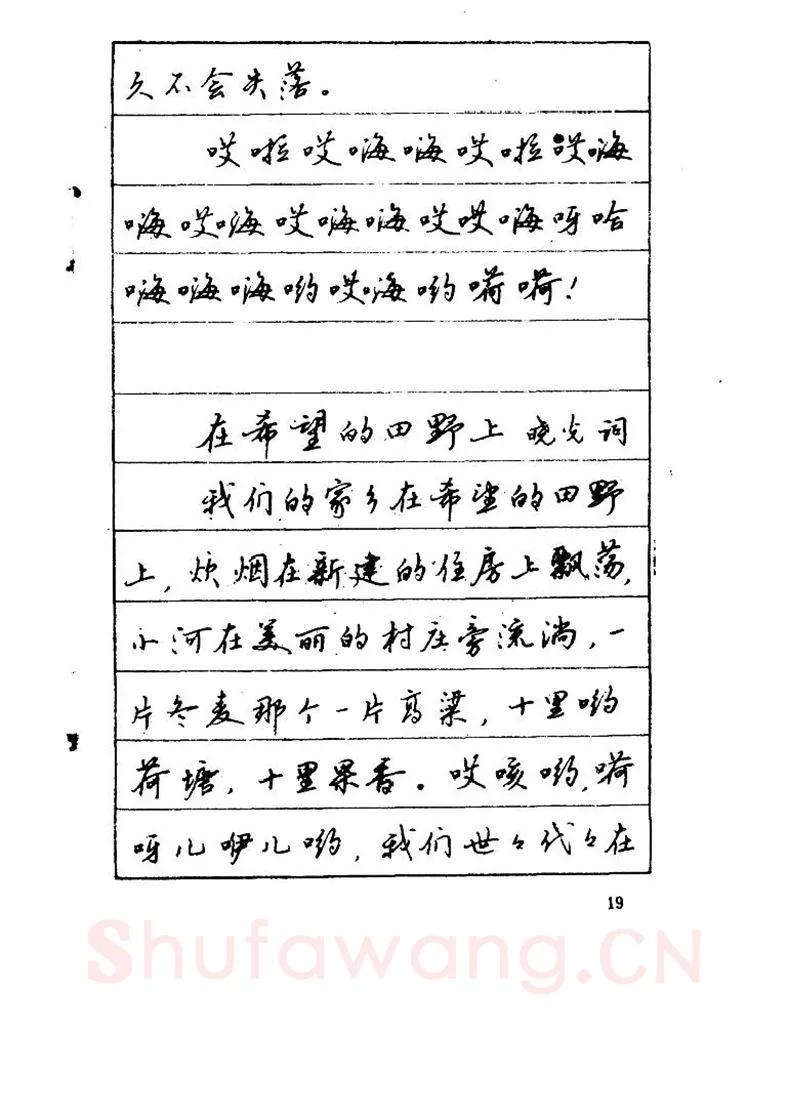 久不会失落。
哎啦哎嗨嗨哎啦哎嗨
嗨哎嗨哎嗨嗨哎哎嗨呀哈
嗨嗨嗨哟哎嗨哟嗬嗬!
在希望的田野上 晓光词
我们的家乡在希望的田野
上,炊烟在新建的住房上飘荡,
小河在美丽的村庄旁流淌,一
片冬麦那个一片高粱,十里哟
荷塘,十里果香。哎咳哟,嗬
呀儿咿儿哟,我们世々代々在
19
Shufawang.CN